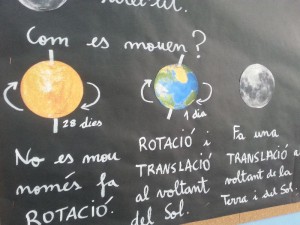 Com es mouen?
28 dies
1 dia
No es mou
només fa
ROTACIÓ.
ROTACIÓ i
TRANSLACIÓ
al voltant
del Sol.
Fa una
TRANSLACIÓ a
voltant de la
Terra i del Sol.